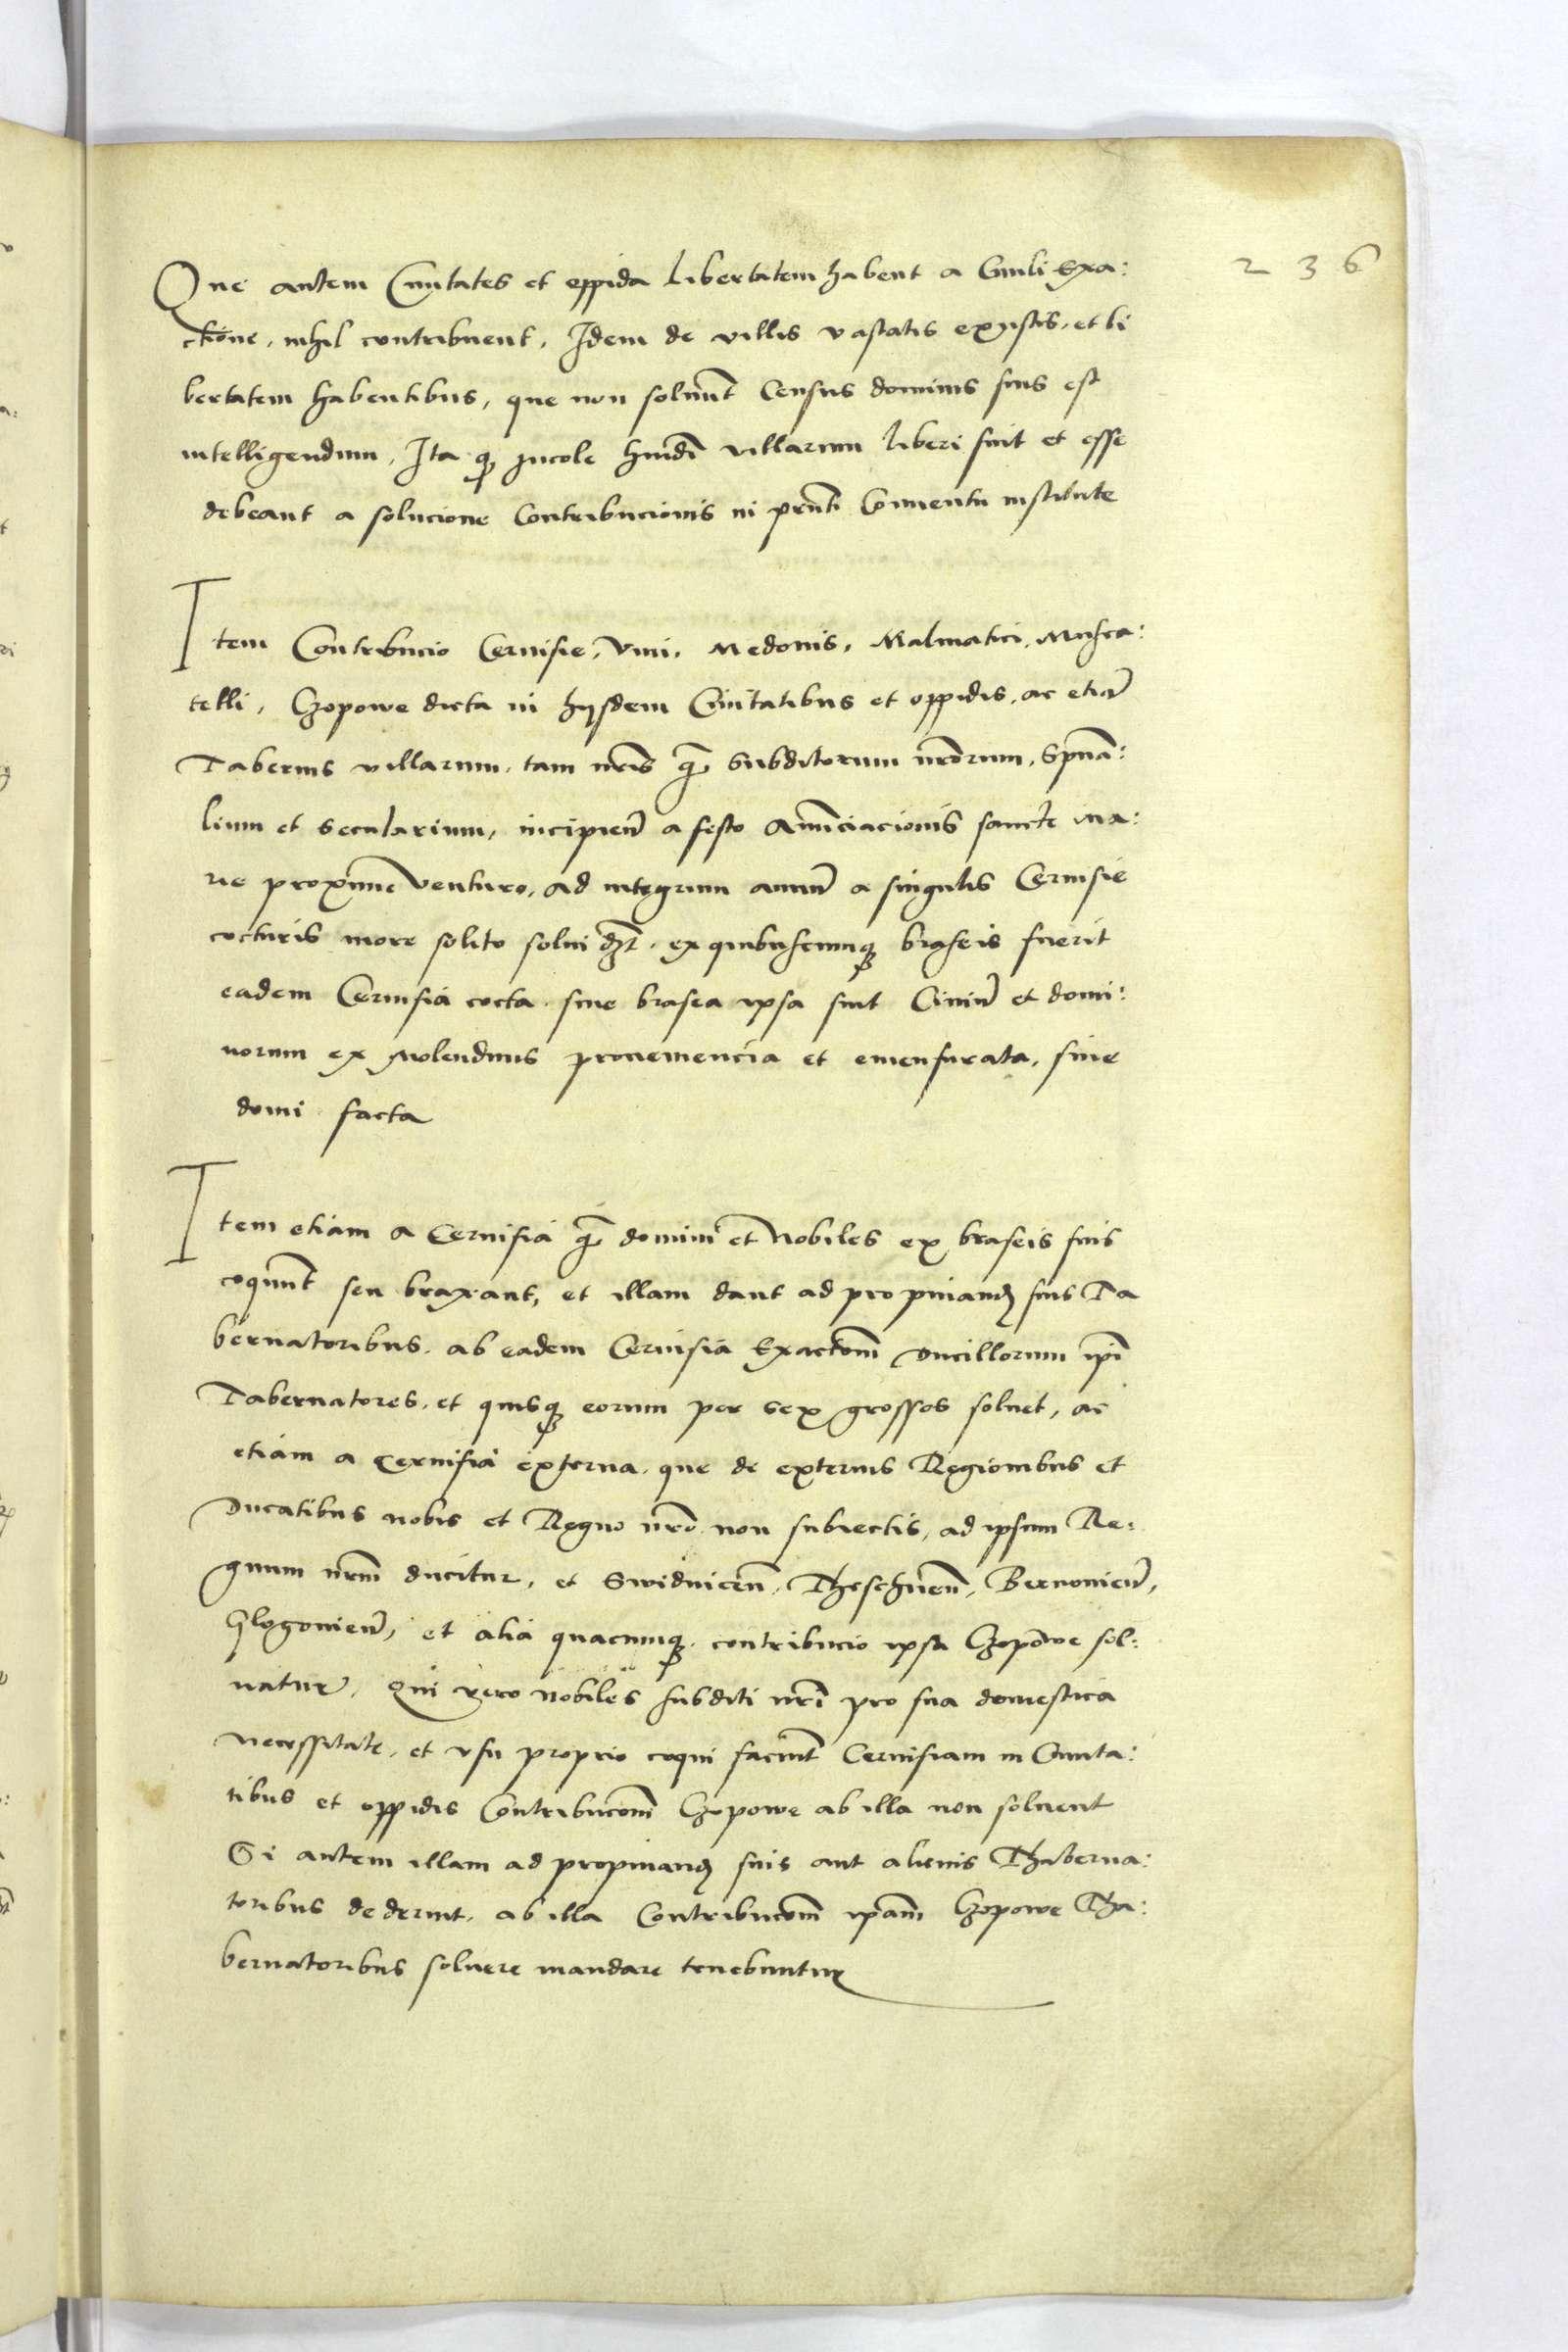 236
Que autem Civitates et oppida libertatem habent a Civili Exa:
ctione, nihil contribuent, Idem de villis vastatis exustis, et li
bertatem habentibus, que non solvunt Census dominis suis est
intelligendum, Ita q̃ incole huiusdi villarum liberi sint et esse
debeant a solucione Contribucionis in prnti Conventu institute
Item Contribucio Cervisie, Vini, Medonis, Malmatici, Musca:
telli, Czopowe dicta in hijsdem Civitatibus et oppidis, ac etiā
Tabernis villarum, tam nris q̃ Subditorum nrorum, Spũa:
lium et Secularium, incipieñ a festo Annũciacionis sancte Ma:
rie proxime venturo, ad integrum annũ a singulis Cervisie
cocturis more solito solvi dz̃t, ex quibuscumq̃ braseis fuerit
eadem Cervisia cocta, sive brasea ipsa sint Civiũ et domi:
norum ex Molendinis proveniencia et emensurata, sive
domi facta
Item etiam a Cervisia q̃ domini et Nobiles ex braseis suis
coquũt seu braxant, et illam dant ad propinandz suis Ta
bernatoribus, ab eadem Cervisia Exactiom̃ Ducillorum ipi
Tabernatores, et quisq̃ eorum per sex grossos solvet, ac
etiam a Cervisia externa, que de externis Regionibus et
Ducatibus nobis et Regno nro non subiectis, ad ipsum Re:
gnum nrm ducitur, et Swidniceñ, Theschneñ, Bernonieñ,
Glogonieñ, et alia quacumq̃, contribucio ipsa Czopowe sol:
vatur, Qui vero Nobiles subditi nri pro sua domestica
necessitate, et usu proprio coqui faciũt Cervisiam in Civita:
tibus et oppidis Contribuciom̃ Czopowe ab illa non solvent
Si autem illam ad propinandz suis aut alienis Thaberna:
toribus dederint, ab illa Contribuciom̃ ipam̃ Czopowe Tha:
bernatoribus solvere mandare tenebuntur